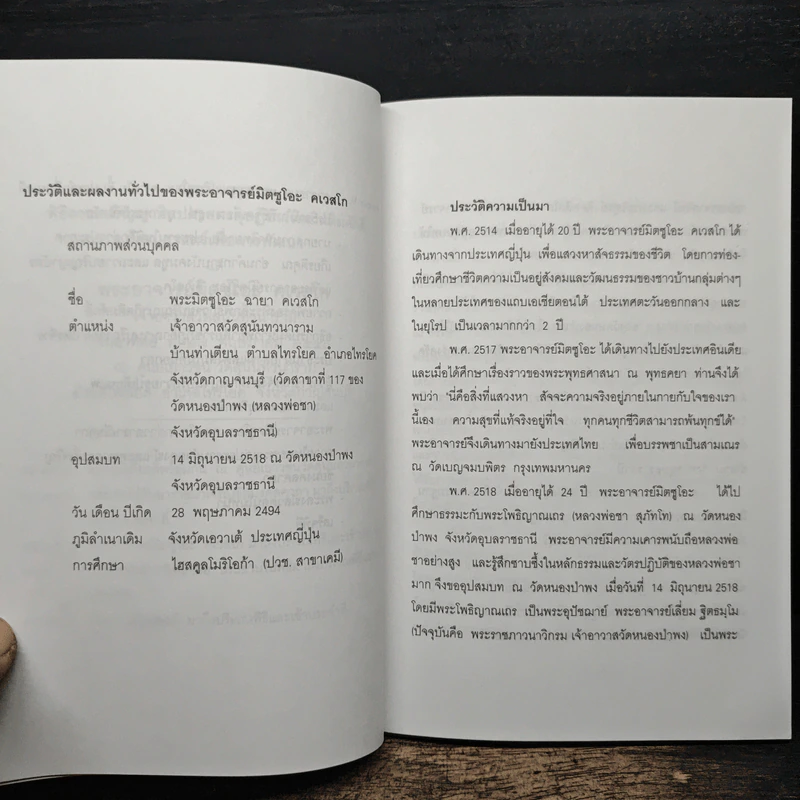 ประวัติและผลงานทั่วไปของพระอาจารย์มิตซูโอะ คเวสโก
สถานภาพส่วนบุคคล
ชื่อ พระมิตซูโอะ ฉายา คเวสโก
ตำแหน่ง เจ้าอาวาสวัดสุนันทวนาราม
บ้านท่าเตียน ตำบลไทรโยค อำเภอไทรโยค
จังหวัดกาญจนบุรี (วัดสาขาที่ 117 ของ
วัดหนองป่าพง (หลวงพ่อชา)
จังหวัดอุบลราชธานี)
อุปสมบท 14 มิถุนายน 2518 ณ วัดหนองป่าพง
จังหวัดอุบลราชธานี
วัน เดือน ปีเกิด 28 พฤษภาคม 2494
ภูมิลำเนาเดิม จังหวัดเอวาเต้ ประเทศญี่ปุ่น
การศึกษา ไฮสคูลโมริโอก้า (ปวช. สาขาเคมี)
ประวัติความเป็นมา
พ.ศ. 2514 เมื่ออายุได้ 20 ปี พระอาจารย์มิตซูโอะ คเวสโก ได้
เดินทางจากประเทศญี่ปุ่น เพื่อแสวงหาสัจธรรมของชีวิต โดยการท่อง-
เที่ยวศึกษาชีวิตความเป็นอยู่สังคมและวัฒนธรรมของชาวบ้านกลุ่มต่างๆ
ในหลายประเทศของแถบเอเชียตอนใต้ ประเทศตะวันออกกลาง และ
ในยุโรป เป็นเวลามากกว่า 2 ปี
พ.ศ. 2517 พระอาจารย์มิตซูโอะ ได้เดินทางไปยังประเทศอินเดีย
และเมื่อได้ศึกษาเรื่องราวของพระพุทธศาสนา ณ พุทธคยา ท่านจึงได้
พบว่า "นี่คือสิ่งที่แสวงหา สัจจะความจริงอยู่ภายในกายกับใจของเรา
นี้เอง ความสุขที่แท้จริงอยู่ที่ใจ ทุกคนทุกชีวิตสามารถพ้นทุกข์ได้"
พระอาจารย์จึงเดินทางมายังประเทศไทย เพื่อบรรพชาเป็นสามเณร
ณ วัดเบญจมบพิตร กรุงเทพมหานคร
พ.ศ. 2518 เมื่ออายุได้ 24 ปี พระอาจารย์มิตซูโอะ ได้ไป
ศึกษาธรรมะกับพระโพธิญาณเถร (หลวงพ่อชา สุภัทโท) ณ วัดหนอง
ป่าพง จังหวัดอุบลราชธานี พระอาจารย์มีความเคารพนับถือหลวงพ่อ
ชาอย่างสูง และรู้สึกซาบซึ้งในหลักธรรมและวัตรปฏิบัติของหลวงพ่อชา
มาก จึงขออุปสมบท ณ วัดหนองป่าพง เมื่อวันที่ 14 มิถุนายน 2518
โดยมีพระโพธิญาณเถร เป็นพระอุปัชฌาย์ พระอาจารย์เลี่ยม ฐิตธมฺโม
(ปัจจุบันคือ พระราชภาวนาวิกรม เจ้าอาวาสวัดหนองป่าพง) เป็นพระ